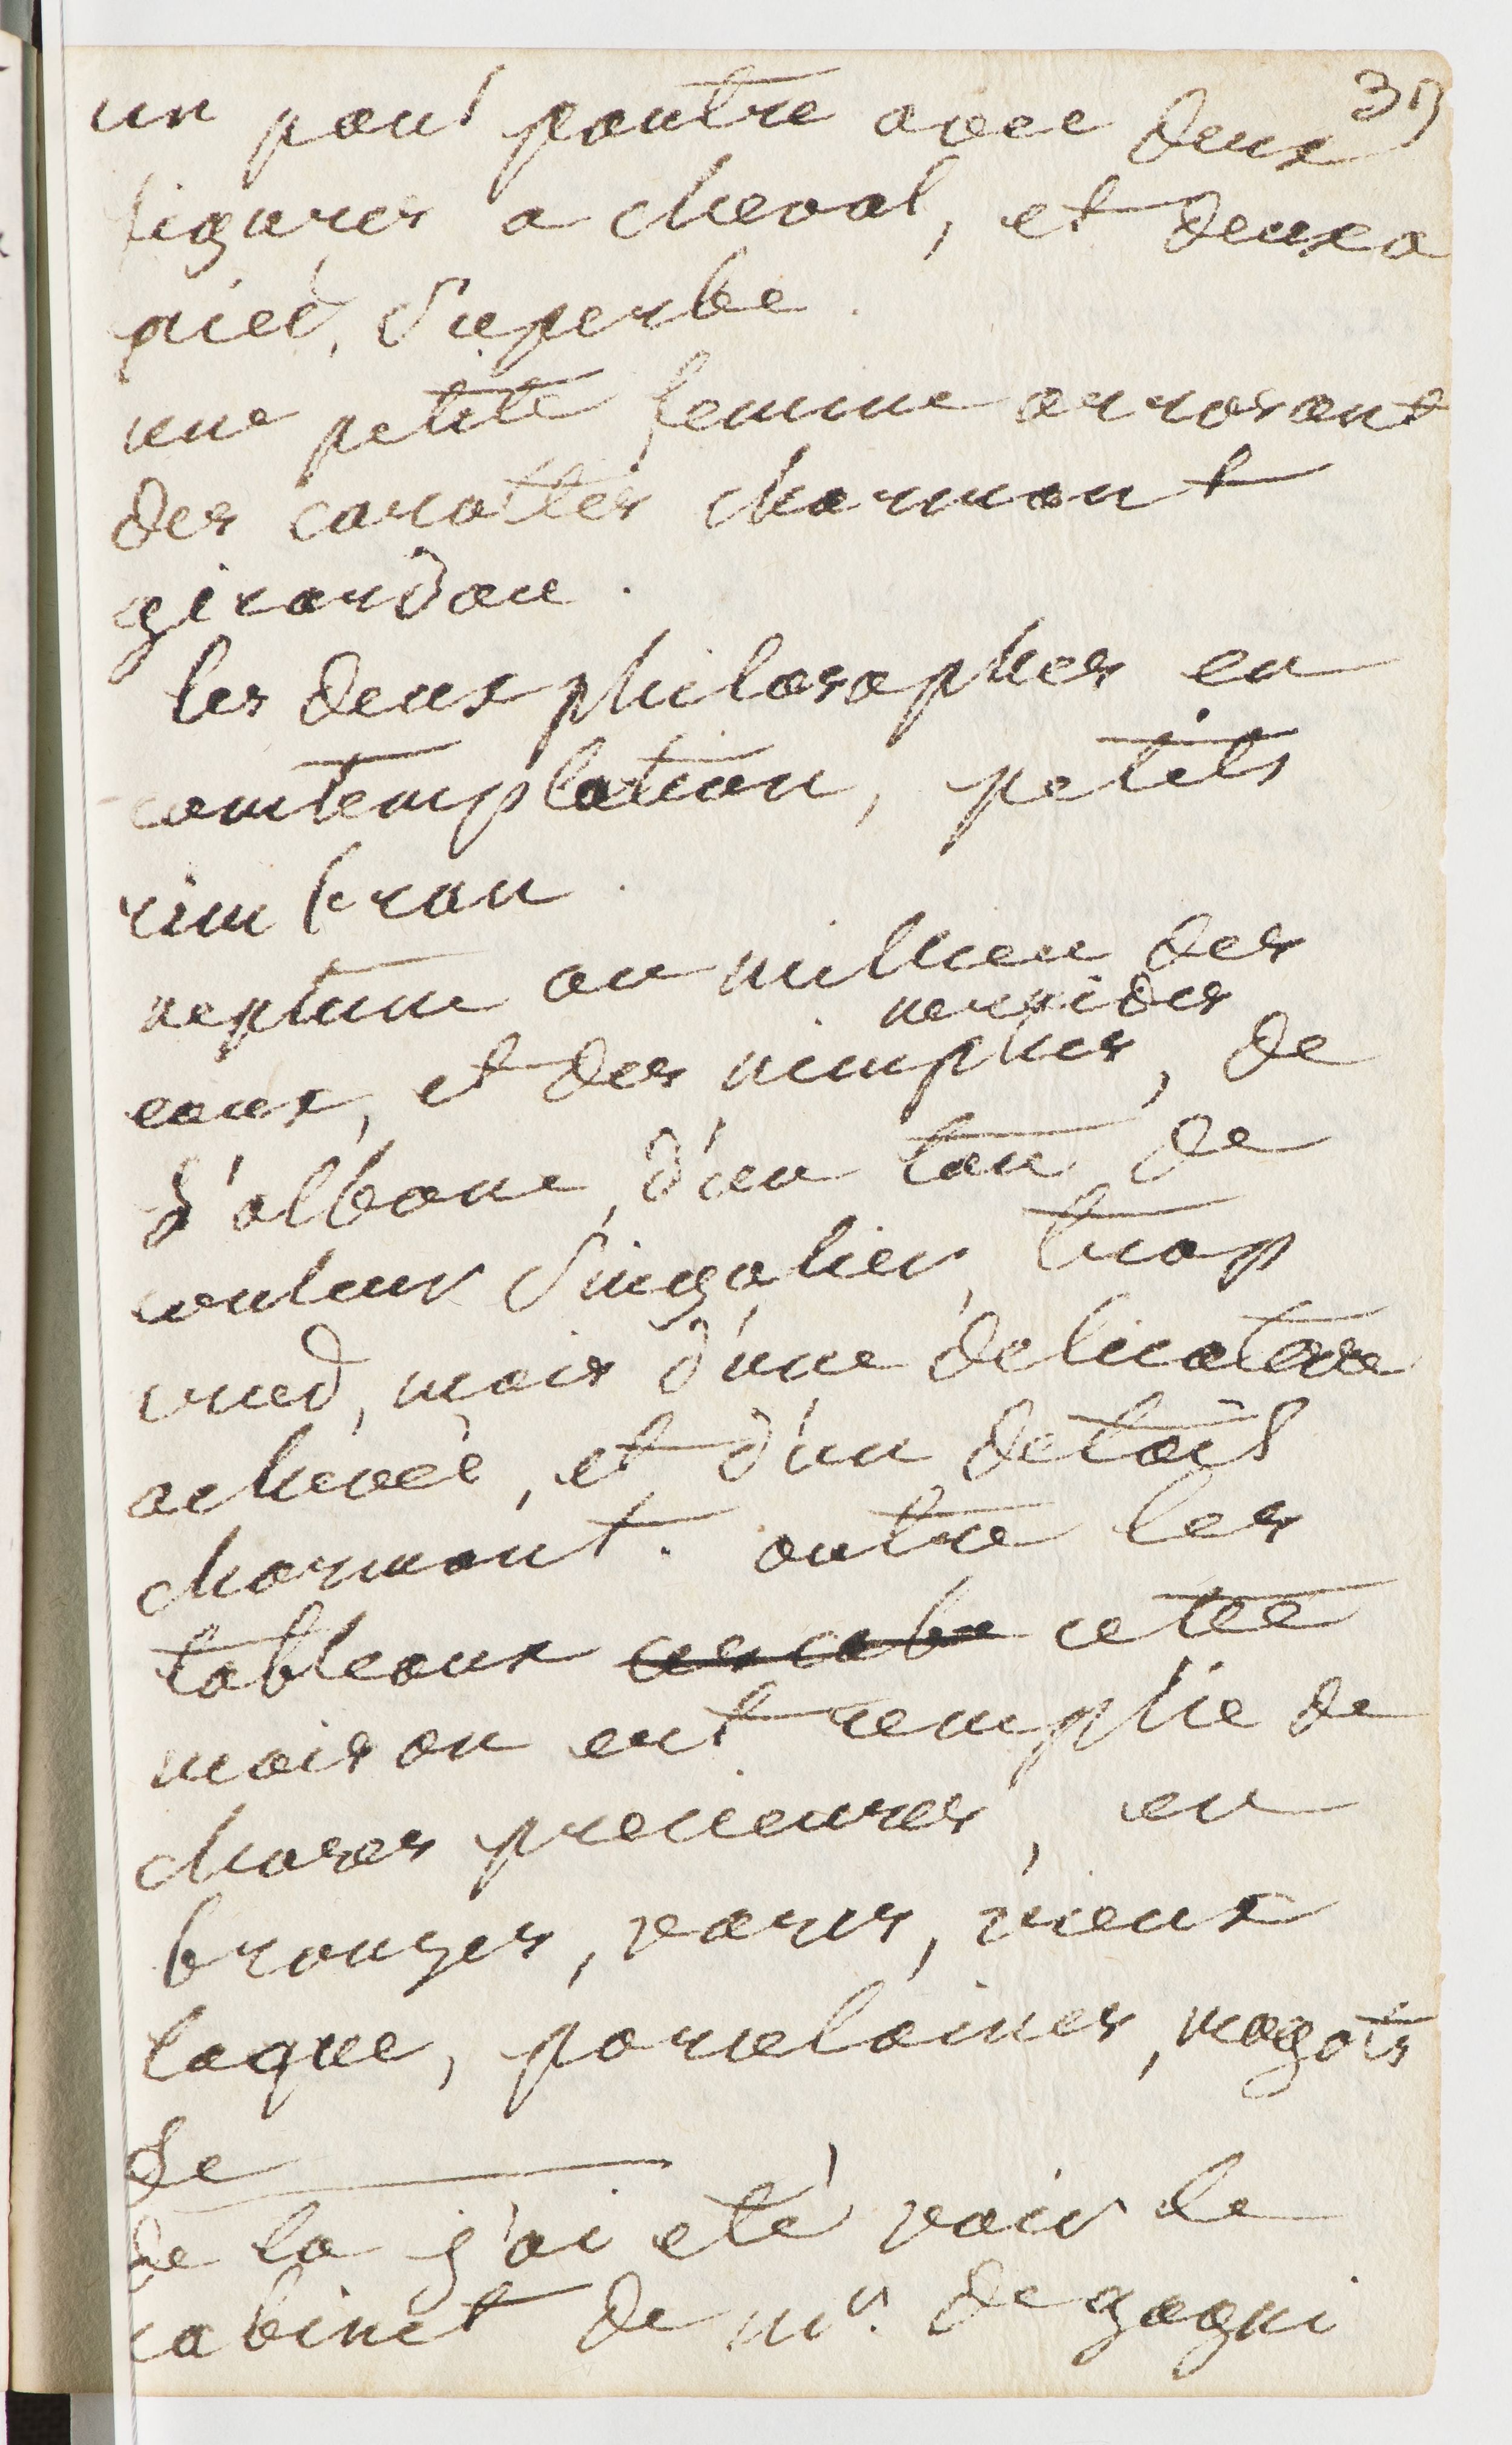 39
un paul poutre avec deux
figures a cheval, et deux a
pied, Superbe.
une petite femme arrosant
des carottes charmant
girardou.
les deux philosophes en
comtemplation, petits
rimbran.
neptune au millieu des
eaux, et des nimphes, de
nereides
l'albane, d'un ton de
couleur Singulier, trop
crud, mais d'une delicatesse
achevée, et d'un detail
charmant. outre les
tableaux cette
maison est remplie de
choses precieuses, en
bronzes, vases, vieux
laque, porcelaines, magots
&c
de la j'ai eté voir le
cabinet de mr. de gagni